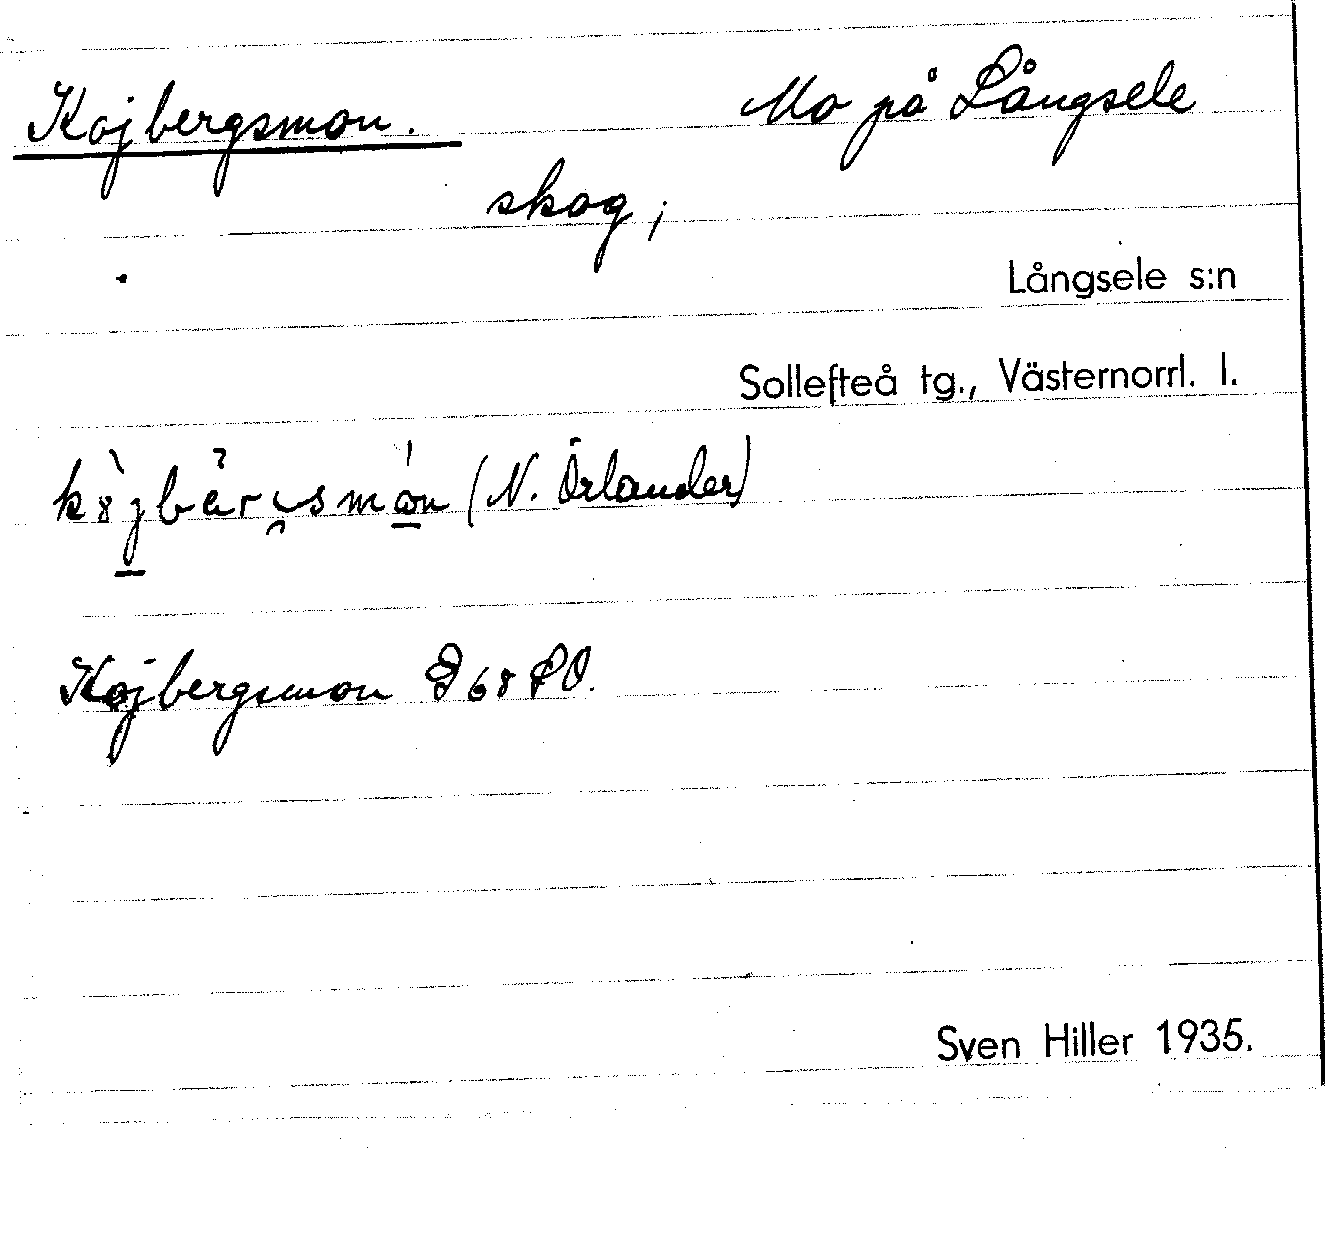 Kojbergsmon. Mo på Långsele
skog;
Långsele s:n
Sollefteå tg., Västernorrl. l.
(N. Örlander)
Kojbergsmon
Sven Hiller 1935.